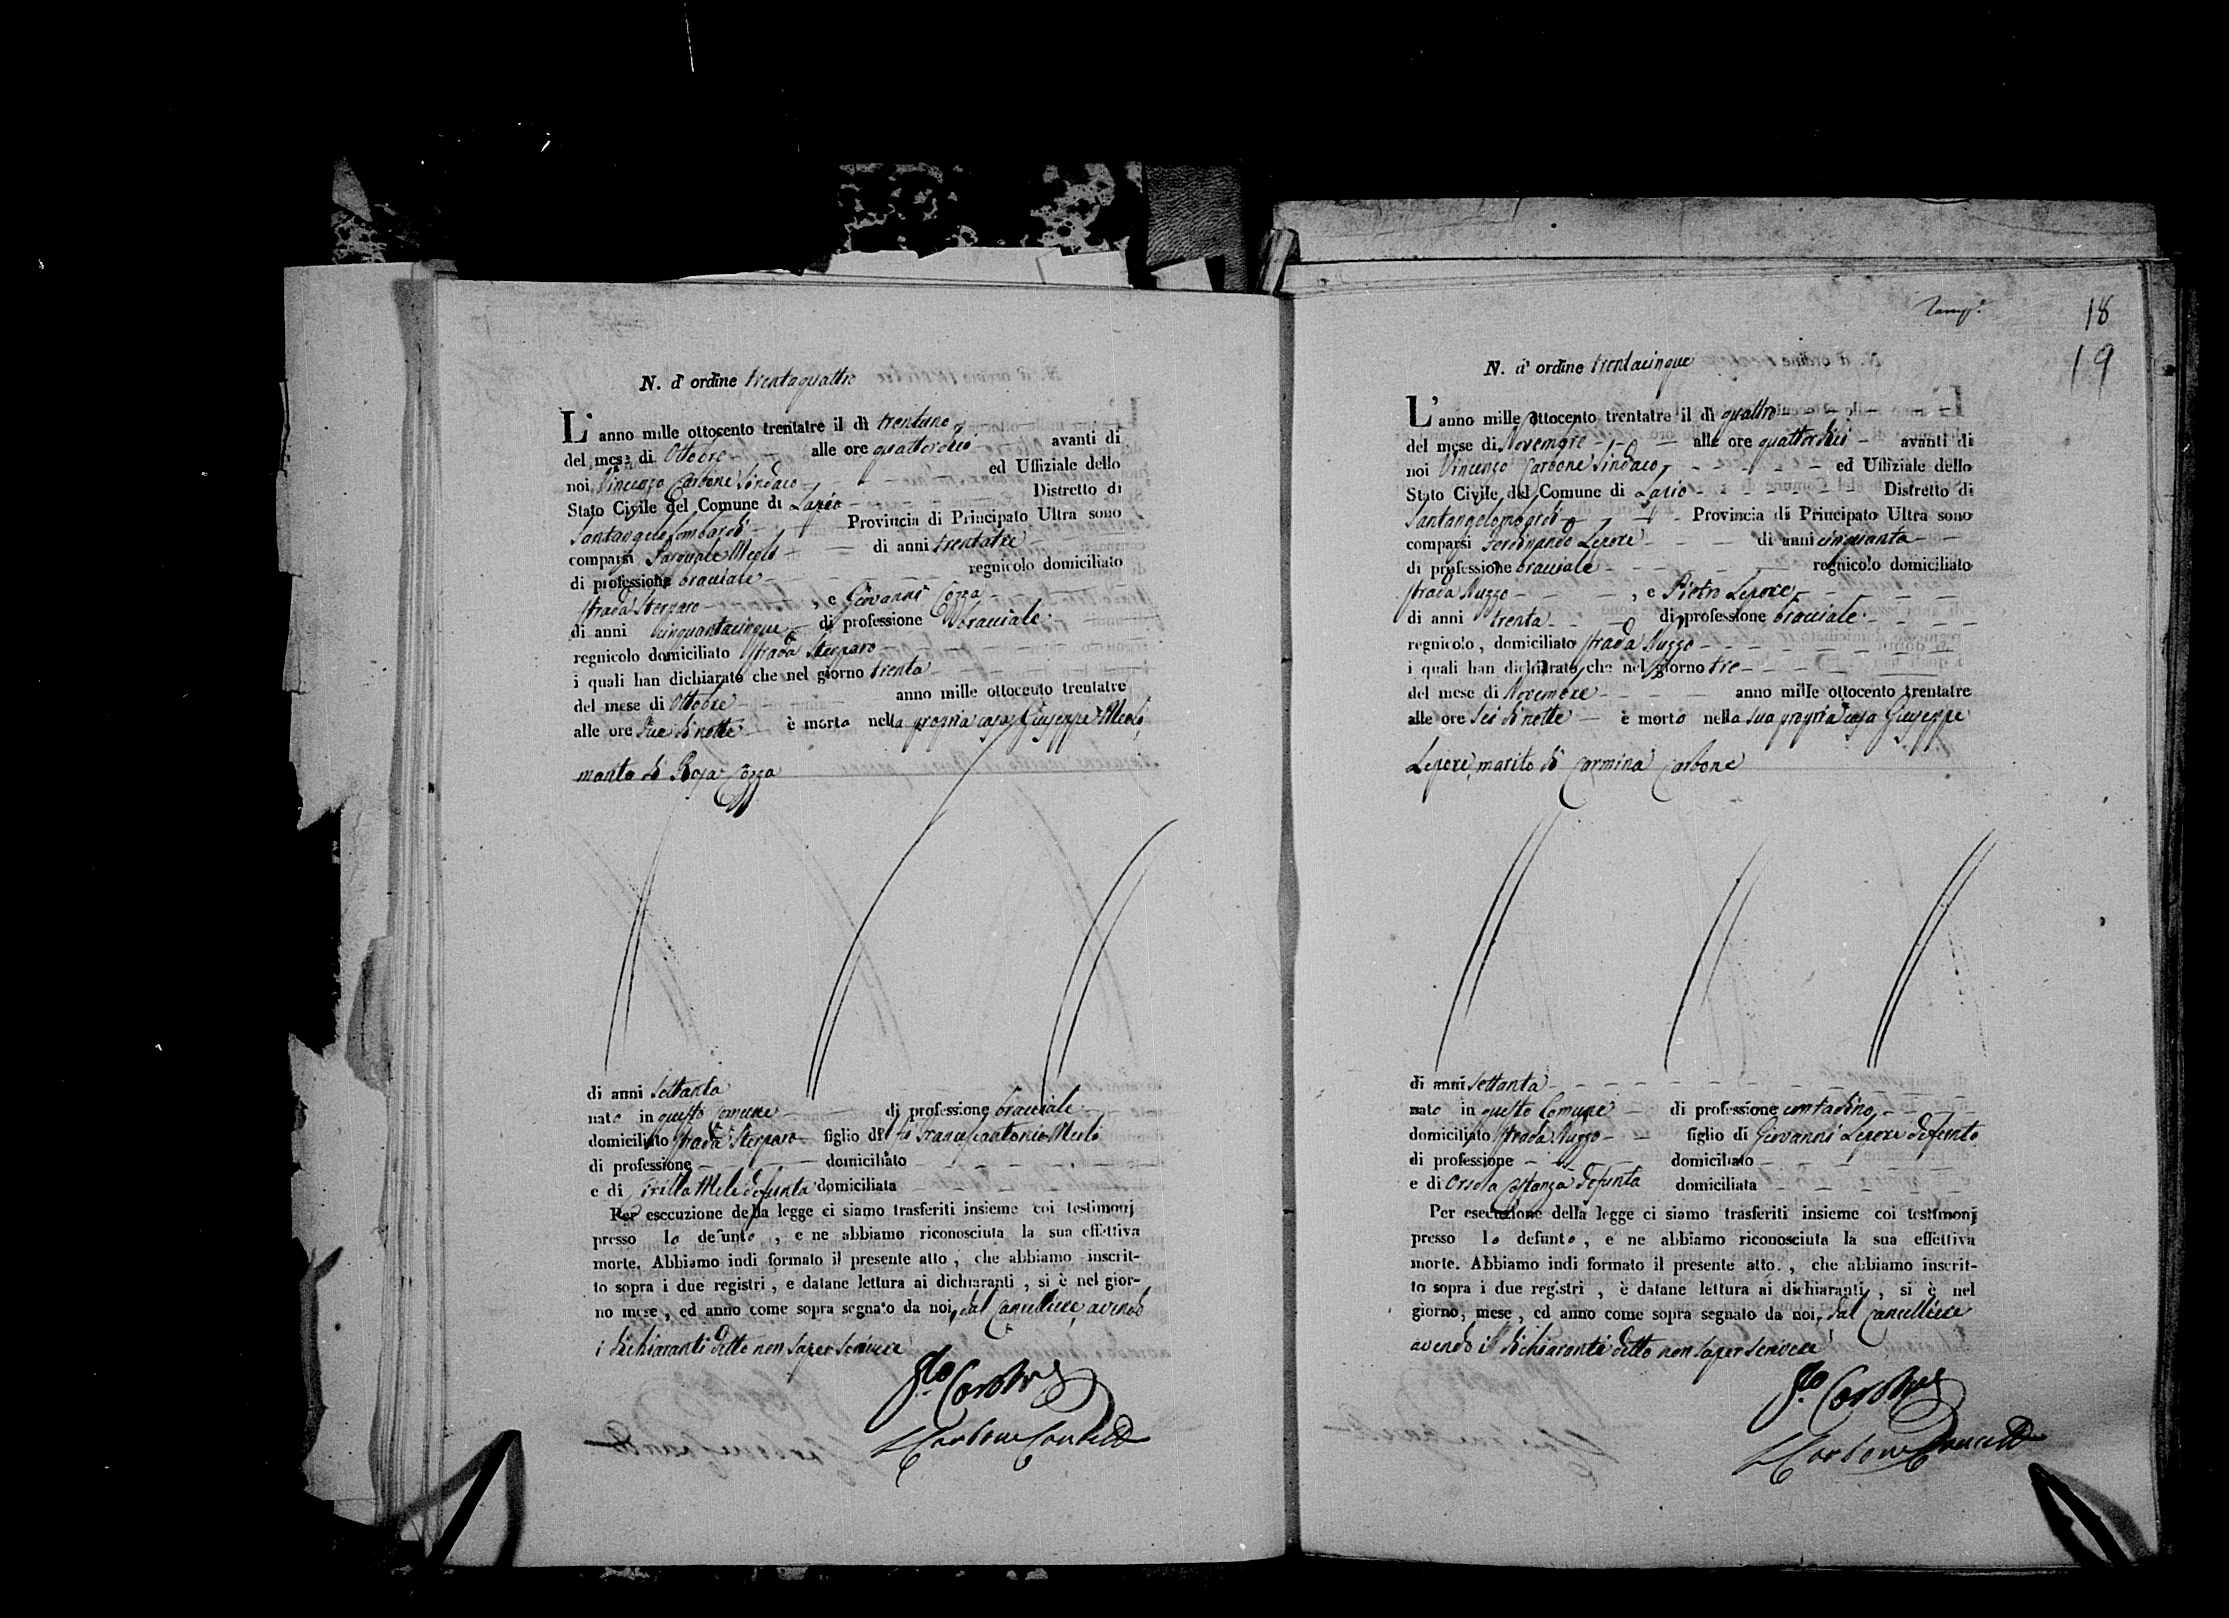 N. d' ordine trentaquattro
L' anno mille ottocento trentatre il dì trentuno
del mese di Ottobre alle ore quattordici avanti di
noi Vincenzo Carbone Sindaco ed Uffiziale dello
Stato Civile del Comune di Lapio Distretto di
Santangelolombardi Provincia di Principato Ultra sono
comparsi Pasquale Meoli di anni trentatre
di professione bracciale regnicolo domiciliato
strada Sterparo , e Giovanni Cozza
di anni cinquantacinque di professione bracciale
regnicolo domiciliato strada Sterparo
i quali han dichiarato che nel giorno trenta
del mese di Ottobre anno mille ottocento trentatre
alle ore due di notte è morto nella propria casa Giuseppe Meoli
marito di Rosa Cozza
di anni settanta
nato in questo Comune di professione bracciale
domiciliato strada Sterparo figlio di fu Francescantonio Meoli
di professione domiciliato
e di Mele defunta domiciliata
Per esecuzione della legge ci siamo trasferiti insieme coi testimonj
presso lo defunto , e ne abbiamo riconosciuta la sua effettiva
morte. Abbiamo indi formato il presente atto , che abbiamo inscrit-
to sopra i due registri , e datane lettura ai dichiaranti , si è nel gior-
no mese , ed anno come sopra segnato da noi, dal Cancelliere, avendo
i dichiaranti detto non saper scrivere
Carbone
Carbone
18
19
N. d' ordine trentacinque
L' anno mille ottocento trentatre il dì quattro
del mese di Novembre alle ore quattordici avanti di
noi Vincenzo Carbone Sindaco ed Uffiziale dello
Stato Civile del Comune di Lapio Distretto di
Santangelombardi Provincia di Principato Ultra sono
comparsi Ferdinando Lepore di anni cinquanta
di professione bracciale regnicolo domiciliato
strada Nuzzo , e Pietro Lepore
di anni trenta di professione bracciale
regnicolo , domiciliato strada Nuzzo
i quali han dichiarato che nel giorno tre
del mese di Novembre anno mille ottocento trentatre
alle ore sei di notte è morto nella sua propria casa Giuseppe
Lepore marito di Carmina Carbone
di anni settanta
nato in questo Comune di professione contadino
domiciliato strada Nuzzo figlio di Giovanni Lepore defunto
di professione domiciliato
e di Orsola Costanza defunta domiciliata
Per esecuzione della legge ci siamo trasferiti insieme coi testimonj
presso lo defunto , e ne abbiamo riconosciuta la sua effettiva
morte. Abbiamo indi formato il presente atto , che abbiamo inscrit-
to sopra i due registri , e datane lettura ai dichiaranti , si è nel
giorno, mese , ed anno come sopra segnato da noi, dal Cancelliere
avendo i dichiaranti detto non saper scrivere
Carbone
Carbone